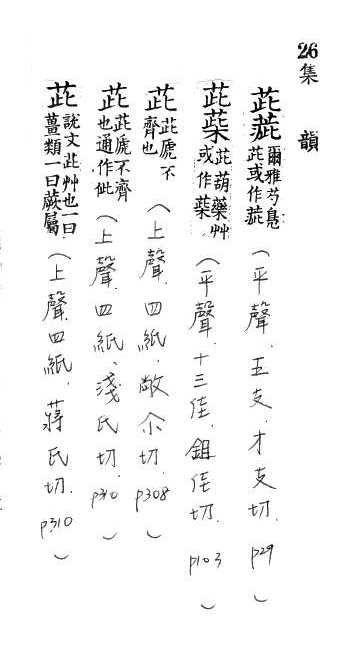 26集 韻
茈茈 爾雅芍鳧茈或作茈（平聲．五支．才支切．p29）
茈茦 茈葫藥艸或作茦（平聲．十三佳．鉏佳切．p103）
茈 茈虒不齊也（上聲．四紙．敞尒切．p308）
茈 茈虒不齊也通作佌（上聲．四紙．淺氏切．p310）
茈 說文茈艸也一曰薑類一曰蕨屬（上聲．四紙．蔣氏切．p310）